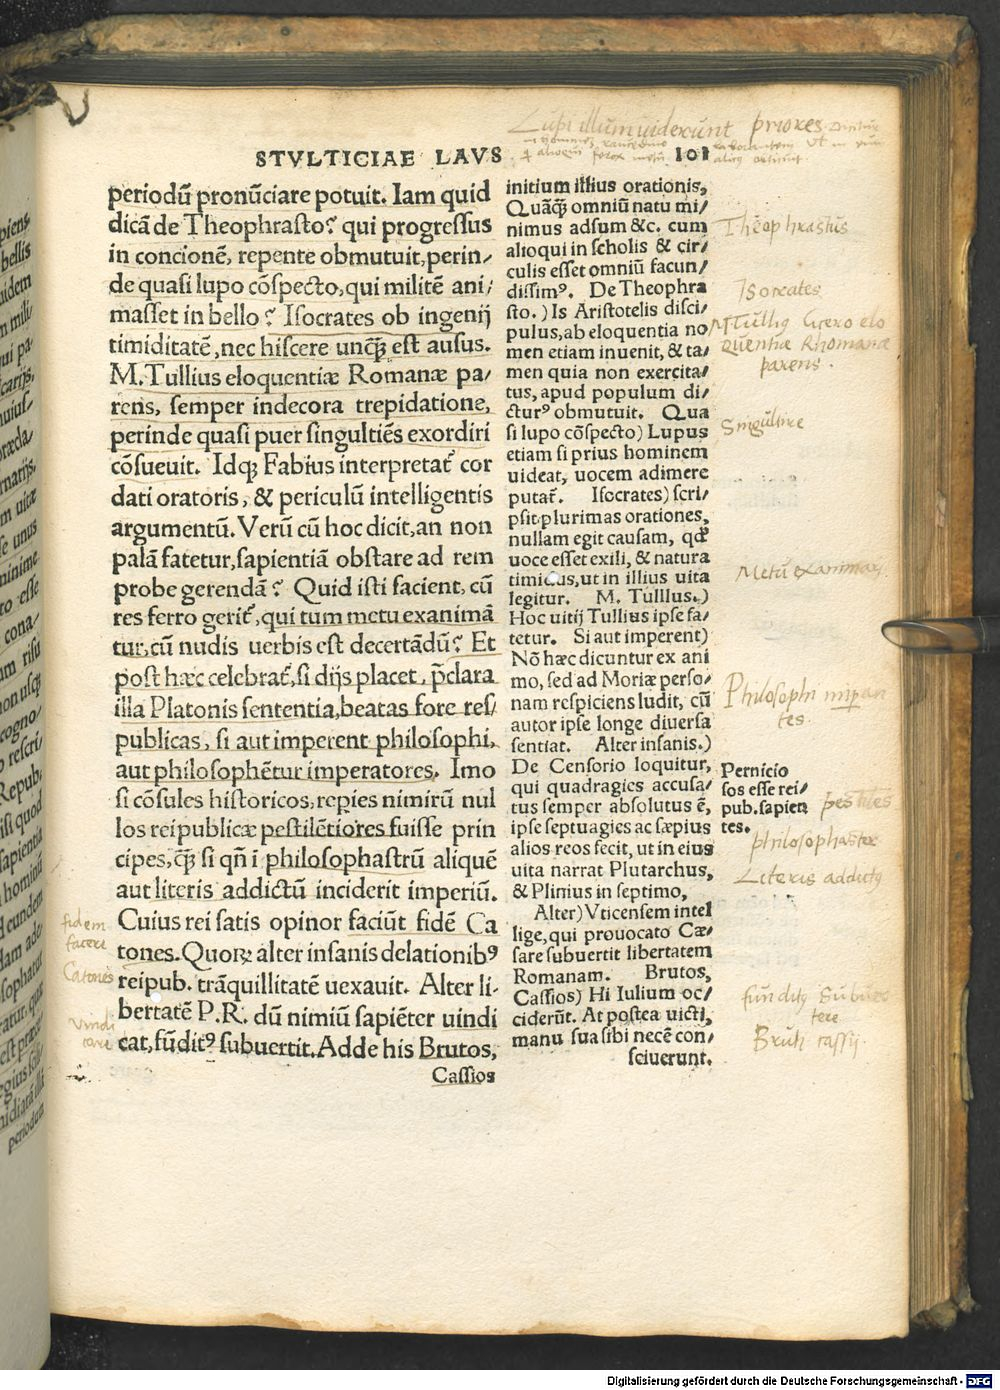 STVLTICIAE LAVS 101
periodū pronūciare potuit. Iam quid
dicā de Theophrasto? qui progressus
in concionē, repente obmutuit, perin/
de quasi lupo cōspecto, qui militē ani/
masset in bello? Isocrates ob ingenij
timiditatē, nec hiscere unꝙ̄ est ausus.
M. Tullius eloquentiæ Romanæ pa/
rens, semper indecora trepidatione,
perinde quasi puer singultiēs exordiri
cōsueuit. Idqꝫ Fabius interpretat᷑ cor
dati oratoris, & periculū intelligentis
argumentū. Verū cū hoc dicit, an non
palā fatetur, sapientiā obstare ad rem
probe gerendā? Quid isti facient, cū
res ferro gerit᷑, qui tum metu exanimā
tur, cū nudis uerbis est decertādū? Et
post hæc celebrat᷑, si dijs placet, p̄clara
illa Platonis sententia, beatas fore res/
publicas, si aut imperent philosophi,
aut philosophētur imperatores. Imo
si cōsules historicos, repies nimirū nul
los reipublicæ pestilētiores fuisse prin
cipes, ꝙ̄ si qñ i philosophastrū aliquē
aut literis addictū inciderit imperiū.
Cuius rei satis opinor faciūt fidē Ca
tones. Quoꝝ alter insanis delationibꝰ
reipub. trāquillitatē uexauit. Alter li-
bertatē P.R. dū nimiū sapiēter uindi
cat, fūditꝰ subuertit. Adde his Brutos,
Cassios
initium illius orationis,
Quāꝙ̄ omniū natu mi/
nimus adsum &c. cum
alioqui in scholis & cir/
culis esset omniū facun/
dissimꝰ. De Theophra
sto.) Is Aristotelis disci/
pulus, ab eloquentia no
men etiam inuenit, & ta/
men quia non exercita/
tus, apud populum di/
cturꝰ obmutuit. Qua
si lupo cōspecto) Lupus
etiam si prius hominem
uideat, uocem adimere
putat᷑. Isocrates) scri/
psit plurimas orationes,
nullam egit causam, qđ
uoce esset exili, & natura
timidus, ut in illius uita
legitur. M. Tulllus.)
Hoc uitij Tullius ipse fa/
tetur. Si aut imperent)
Nō hæc dicuntur ex ani
mo, sed ad Moriæ perso/
nam respiciens ludit, cū
autor ipse longe diuersa
sentiat. Alter insanis.)
De Censorio loquitur,
qui quadragies accusa/
tus semper absolutus ē,
ipse septuagies ac sæpius
alios reos fecit, ut in eius
uita narrat Plutarchus,
& Plinius in septimo,
Alter) Vticensem intel
lige, qui prouocato Cæ/
sare subuertit libertatem
Romanam. Brutos,
Cassios) Hi Iulium oc/
ciderūt. At postea uicti,
manu sua sibi necē con/
sciuerunt.
Lupi illum uiderunt priores
Theophrastus
Isocrates
M Tulliꝰ Cicero elo
quentiæ Rhomanæ
parens.
Singultire
Metu exanimari
Philosophi imperan
tes.
Pernicio
sos esse rei/
pub. sapien
tes.
pestiles
philosophaster
Literis addictꝰ
funditꝰ subuer
tere
Bruti cassij.
fidem
facere
Catones
vindi
care
Digitalisierung gefördert durch die Deutsche Forschungsgemeinschaft - DFG